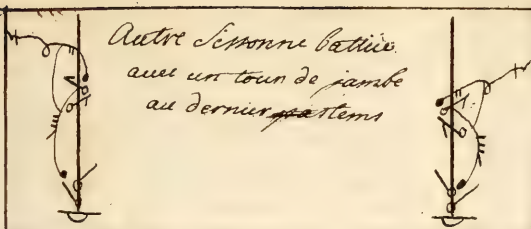 Autre Sissonne battüe
avec un tour de jambe
au dernier tems